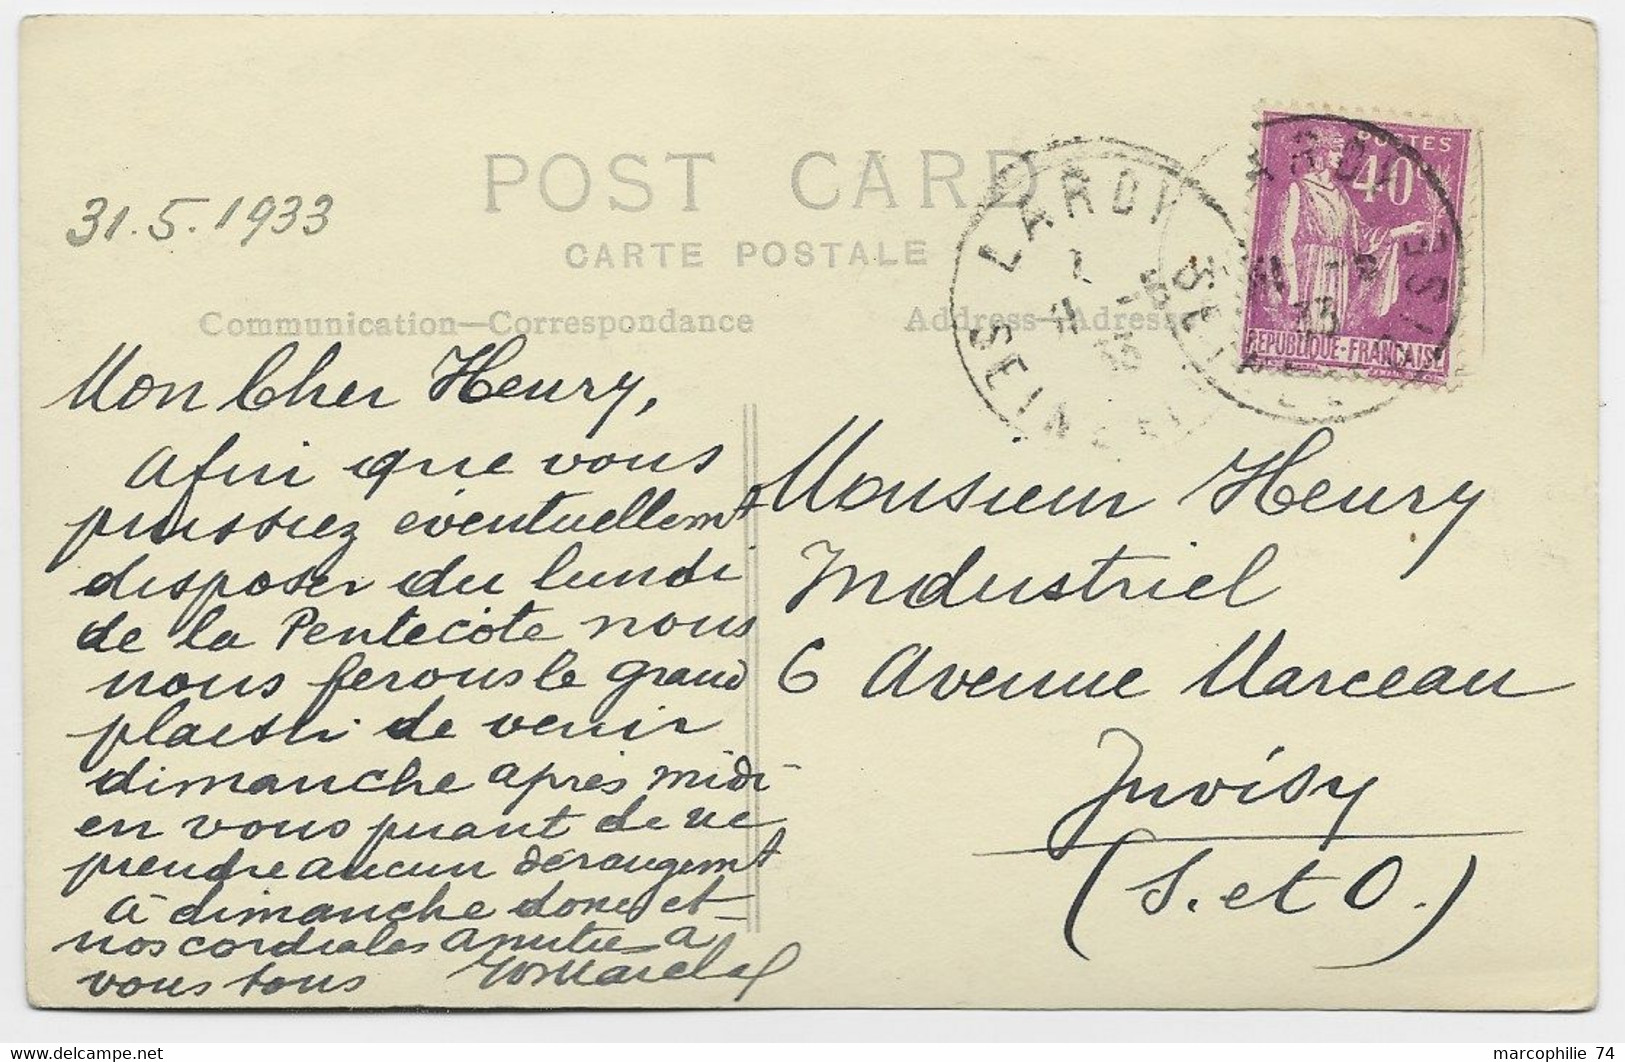 POST CARD
CARTE POSTALE
31.5.1933
Communication—Correspondance
Address—Adresse
POSTES
40c
REPUBLIQUE-FRANÇAISE
LARDY
SEINE
LARDY
31 -5
33
Mon Cher Henry,
Afin que vous
puissiez éventuellemt
disposer du lundi
de la Pentecôte nous
nous ferons le grand
plaisir de venir
dimanche après midi
en vous priant de ne
prendre aucun dérangemt
à dimanche donc et
nos cordiales amitiés à
vous tous
Monsieur Henry
Industriel
6 Avenue Marceau
Juvisy
(S. et O.)
marcophilie 74